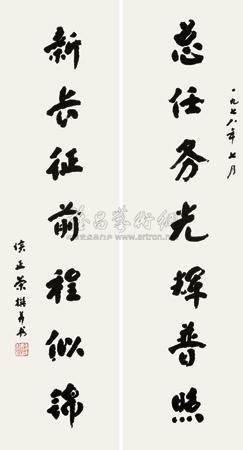 总任务光辉普照
一九七八年七月
新长征前程似锦
侯正荣撰并书
www.artron.net